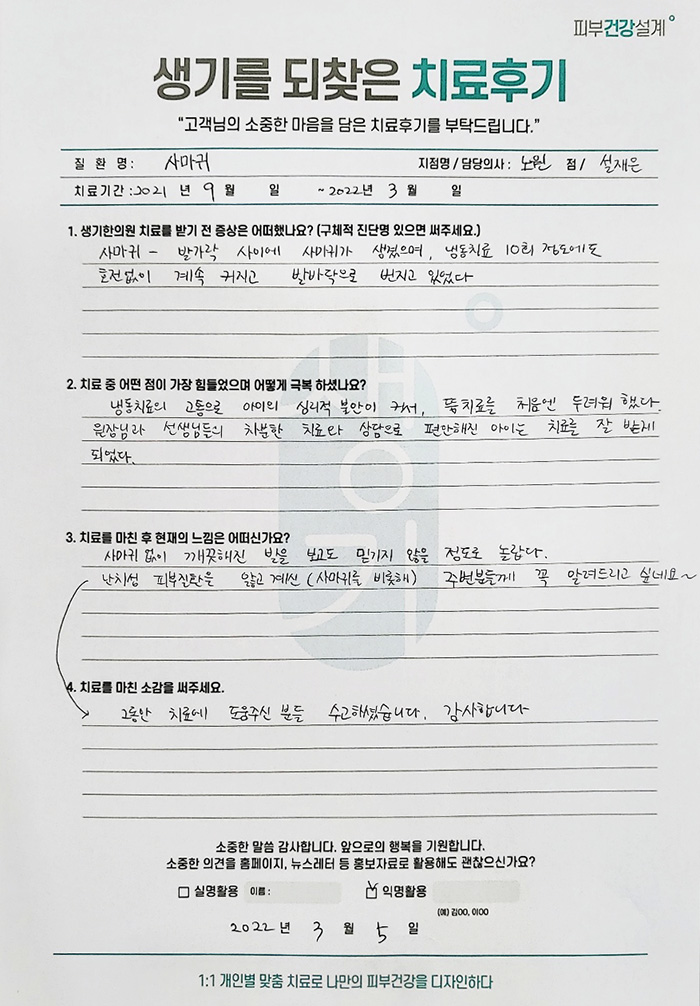 피부건강설계
생기를 되찾은 치료후기
“고객님의 소중한 마음을 담은 치료후기를 부탁드립니다.”
질 환 명 : 사마귀 지점명 / 담당의사 : 노원 점 / 설재은
치료기간 : 2021 년 9 월 일 ~ 2022 년 3 월 일
1. 생기한의원 치료를 받기 전 증상은 어떠했나요? (구체적 진단명 있으면 써주세요.)
사마귀 - 발가락 사이에 사마귀가 생겼으며, 냉동치료 10회 정도에도
호전없이 계속 커지고 발바닥으로 번지고 있었다
2. 치료 중 어떤 점이 가장 힘들었으며 어떻게 극복 하셨나요?
냉동치료의 고통으로 아이의 심리적 불안이 커서, 뜸치료를 처음엔 두려워 했다.
원장님과 선생님들의 차분한 치료와 상담으로 편안해진 아이는 치료를 잘 받게
되었다.
3. 치료를 마친 후 현재의 느낌은 어떠신가요?
사마귀 없이 깨끗해진 발을 보고도 믿기지 않을 정도로 놀랍다.
난치성 피부질환을 앓고 계신 (사마귀를 비롯해) 주변분들께 꼭 알려드리고 싶네요~
4. 치료를 마친 소감을 써주세요.
그동안 치료에 도움주신 분들 수고하셨습니다. 감사합니다
소중한 말씀 감사합니다. 앞으로의 행복을 기원합니다.
소중한 의견을 홈페이지, 뉴스레터 등 홍보자료로 활용해도 괜찮으신가요?
실명활용 이름 : 익명활용
(예) 김OO, 이OO
2022 년 3 월 5 일
1:1 개인별 맞춤 치료로 나만의 피부건강을 디자인하다